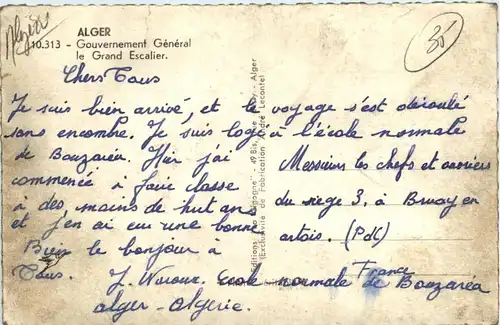 Algérie
ALGER
10.313 - Gouvernement Général
le Grand Escalier.
35
Chers Tous
Je suis bien arrivé, et le voyage s'est déroulé
sans encombre. Je suis logé à l'école normale
de Bouzaréa. Hier j'ai
commencé à faire classe
à des moins de huit ans
et j'en ai eu une bonne
Bien le bonjour à
Tous.
Messieurs les chefs et ouvriers
du siège 3, à Bruay en
artois. (PdC)
France
J. Ecole normale de Bouzaréa
alger - algérie.
Editions "La Cigogne" 49 Bis, Rue Alger
(Exclusivité de Fabrication André Leconte)